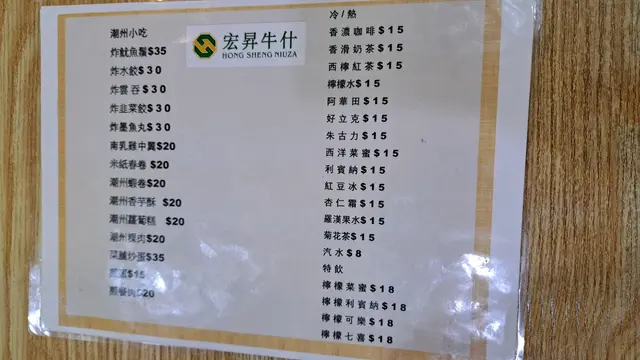 潮州小吃
炸魷魚鬚$35
炸水餃$30
炸雲吞$30
炸韭菜餃$30
炸墨魚丸$30
南乳雞中翼$20
米紙春卷 $20
潮州蝦卷$20
潮州香芋酥 $20
潮州蘿蔔糕 $20
潮州粿肉$20
菜脯炒蛋$35
$15
煎餐肉$20
宏昇牛什
HONG SHENG NIUZA
冷/熱
香濃咖啡$15
香滑奶茶$15
西檸紅茶$15
檸檬水$15
阿華田$15
好立克$15
朱古力$15
西洋菜蜜$15
利賓納$15
紅豆冰$15
杏仁霜$15
羅漢果水$15
菊花茶$15
汽水$8
特飲
檸檬菜蜜$18
檸檬利賓納$18
檸檬可樂$18
檸檬七喜$18